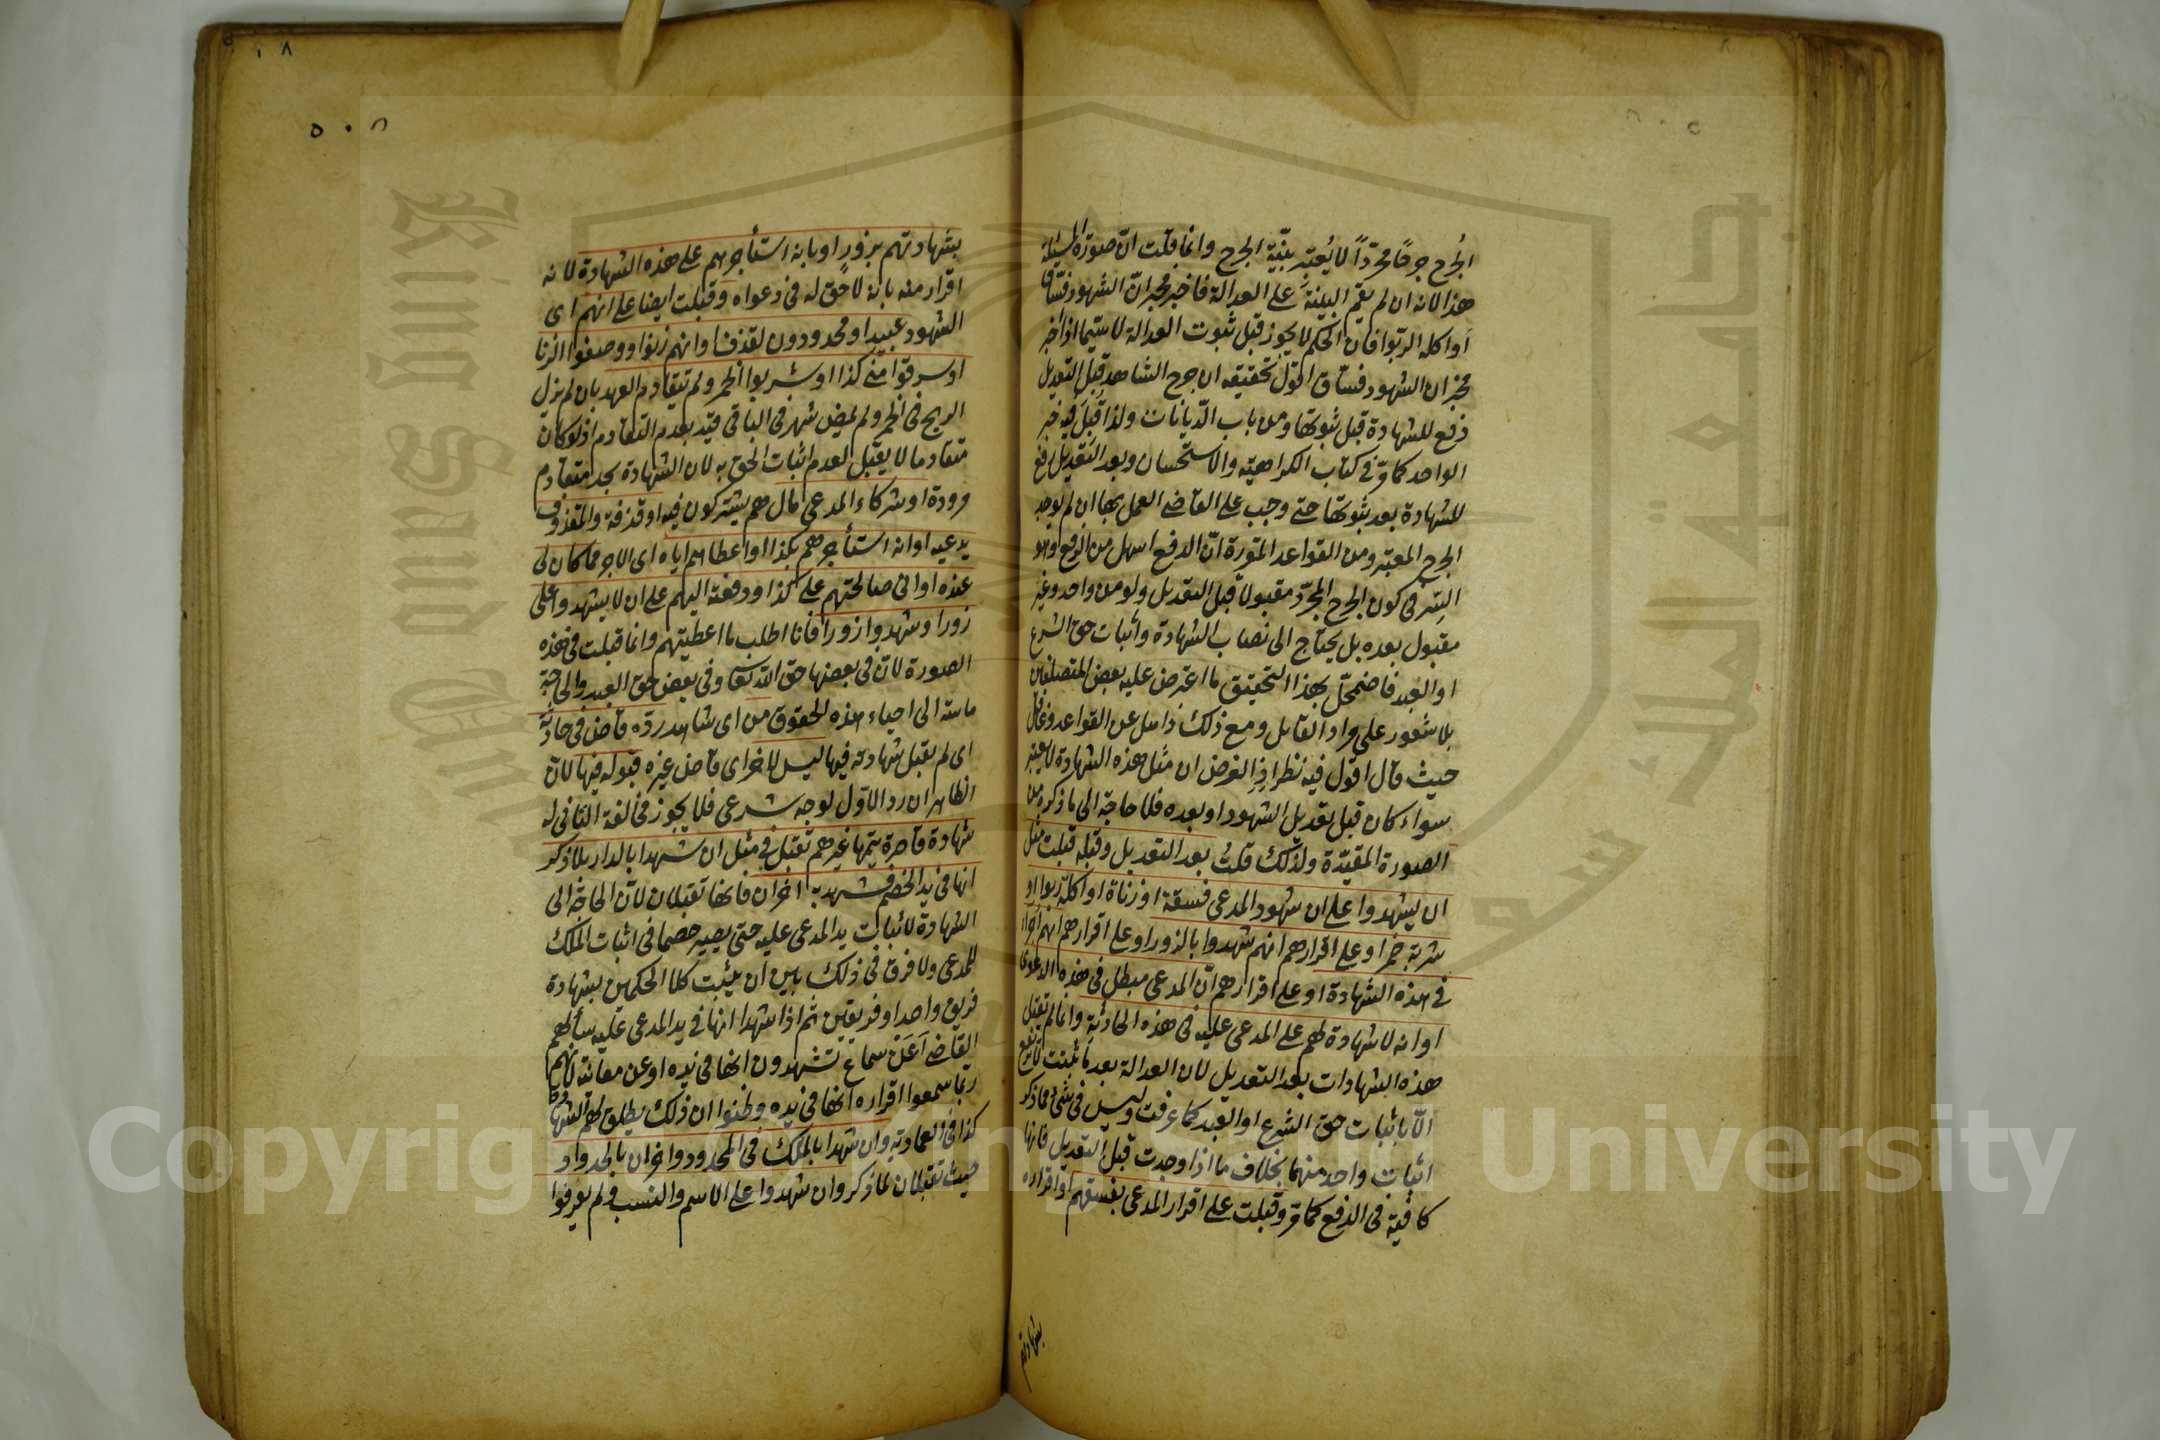 الجرح جرحا مجردا لا يعتبر بينة الجرح وانما قلت ان صورة المسئلة
هذا لانه ان لم يقم البينة على العدالة فاخبر مخبر ان الشهود فساق
او اكلة الربوا فان الحكم لا يجوز قبل ثبوت العدالة لا سيما اذا اخبر
مخبر ان الشهود فساق اقول تحقيقه ان جرح الشاهد قبل التعديل
دفع للشهادة قبل ثبوتها ومن باب الديانات ولذا قبل فيه خبر
الواحد كما مر في كتاب الكراهية والاستحسان وبعد التعديل رفع
للشهادة بعد ثبوتها حتى وجب على القاضي العمل بها ان لم يوجد
الجرح المعتبر ومن القواعد المقررة ان الدفع اسهل من الرفع وهو
السر في كون الجرح المجرد مقبولا قبل التعديل ولو من واحد وغير
مقبول بعده بل يحتاج الى نصاب الشهادة واثبات حق الشرع
او العبد فاضمحل بهذا التحقيق ما اعترض عليه بعض المتصلفين
بلا شعور على مراد القائل ومع ذلك ذاهل عن القواعد وغافل
حيث قال اقول فيه نظر اذ الغرض ان مثل هذه الشهادة لا يعتبر
سواء كان قبل تعديل الشهود او بعده فلا حاجة الى ما ذكره من
الصورة المقيدة ولذلك قلت بعد التعديل وقبله قبلت مثل
ان يشهدوا على ان شهود المدعي فسقة او زناة او اكلة ربوا او
شربة خمر او على اقرارهم انهم شهدوا بالزور او على اقرارهم انهم اجراء
في هذه الشهادة او على اقرارهم ان المدعي مبطل في هذه الدعوى
او انه لا شهادة لهم على المدعى عليه في هذه الحادثة وانما لم تقبل
هذه الشهادات بعد التعديل لان العدالة بعد ما ثبتت لا ترتفع
الا باثبات حق الشرع او العبد كما عرفت وليس في شئ مما ذكر
اثبات واحد منهما بخلاف ما اذا وجدت قبل التعديل فانها
كافية في الدفع كما مر وقبلت على اقرار المدعي بفسقهم او اقراره
بشهادتهم
٥٠٨
بشهادتهم بزور او بانه استأجرهم على هذه الشهادة لانه
اقرار منه بانه لا حق له في دعواه وقبلت ايضا على انهم اي
الشهود عبيد او محدودون لقذف او انهم زنوا ووصفوا الزنا
او سرقوا مني كذا او شربوا الخمر ولم يتقادم العهد بان لم يزل
الريح في الخمر ولم يمض شهر في الباقي قيد بعدم التقادم اذ لو كان
متقادما لا يقبل لعدم اثبات الحق به لان الشهادة بحد متقادم
مردودة او شركاء المدعي مال هم يشتركون فيه او قذفة والمقذوف
يدعيه او انه استأجرهم بكذا واعطاهم اياه اي الاجر مما كان لي
عنده او اني صالحتهم على كذا ودفعته اليهم على ان لا يشهدوا على
زورا وشهدوا زورا فانا اطلب ما اعطيتهم وانما قبلت في هذه
الصورة لان في بعضها حق الله تعا وفي بعض حق العبد والحاجة
ماسة الى احياء هذه الحقوق من اي شاهد رده قاض في حادثة
اي لم يقبل شهادته فيها ليس لاخر اي قاض غيره قبوله فيها لان
الظاهر ان رد الاول لوجه شرعي فلا يجوز مخالفة الثاني له
شهادة قاصرة يتمها غيرهم تقبل في مثل ان شهدا بالدار بلا ذكر
انها في يد الخصم فشهد به اخران فانها تقبلان لان الحاجة الى
الشهادة لاثبات يد المدعى عليه حتى يصير خصما في اثبات الملك
للمدعي ولا فرق في ذلك بين ان يثبت كلا الحكمين بشهادة
فريق واحد او فريقين ثم اذا شهدا انها في يد المدعى عليه سألهم
القاضي أعن سماع تشهدون انها في يده او عن معاينة لانهم
ربما سمعوا اقراره انها في يده وظنوا ان ذلك يطلق لهم الشهادة
كذا في العمادية وان شهدا بالملك في المحدود واخران بالحدود
حيث تقبلان لما ذكر وان شهدوا على الاسم والنسب ولم يعرفوا
Copyright © King Saud University
جامعة الملك سعود